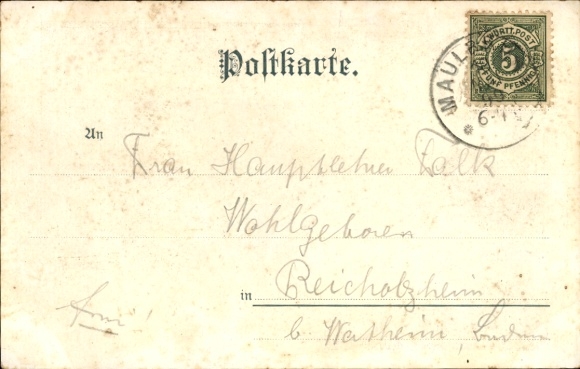 Postkarte.
K. WÜRTT. POST
5
FÜNF PFENNIG
MAUL
6-7
An
Frau Hauptlehrer Falk
Wohlgeboren
in Reicholzheim
b. Wertheim, Baden